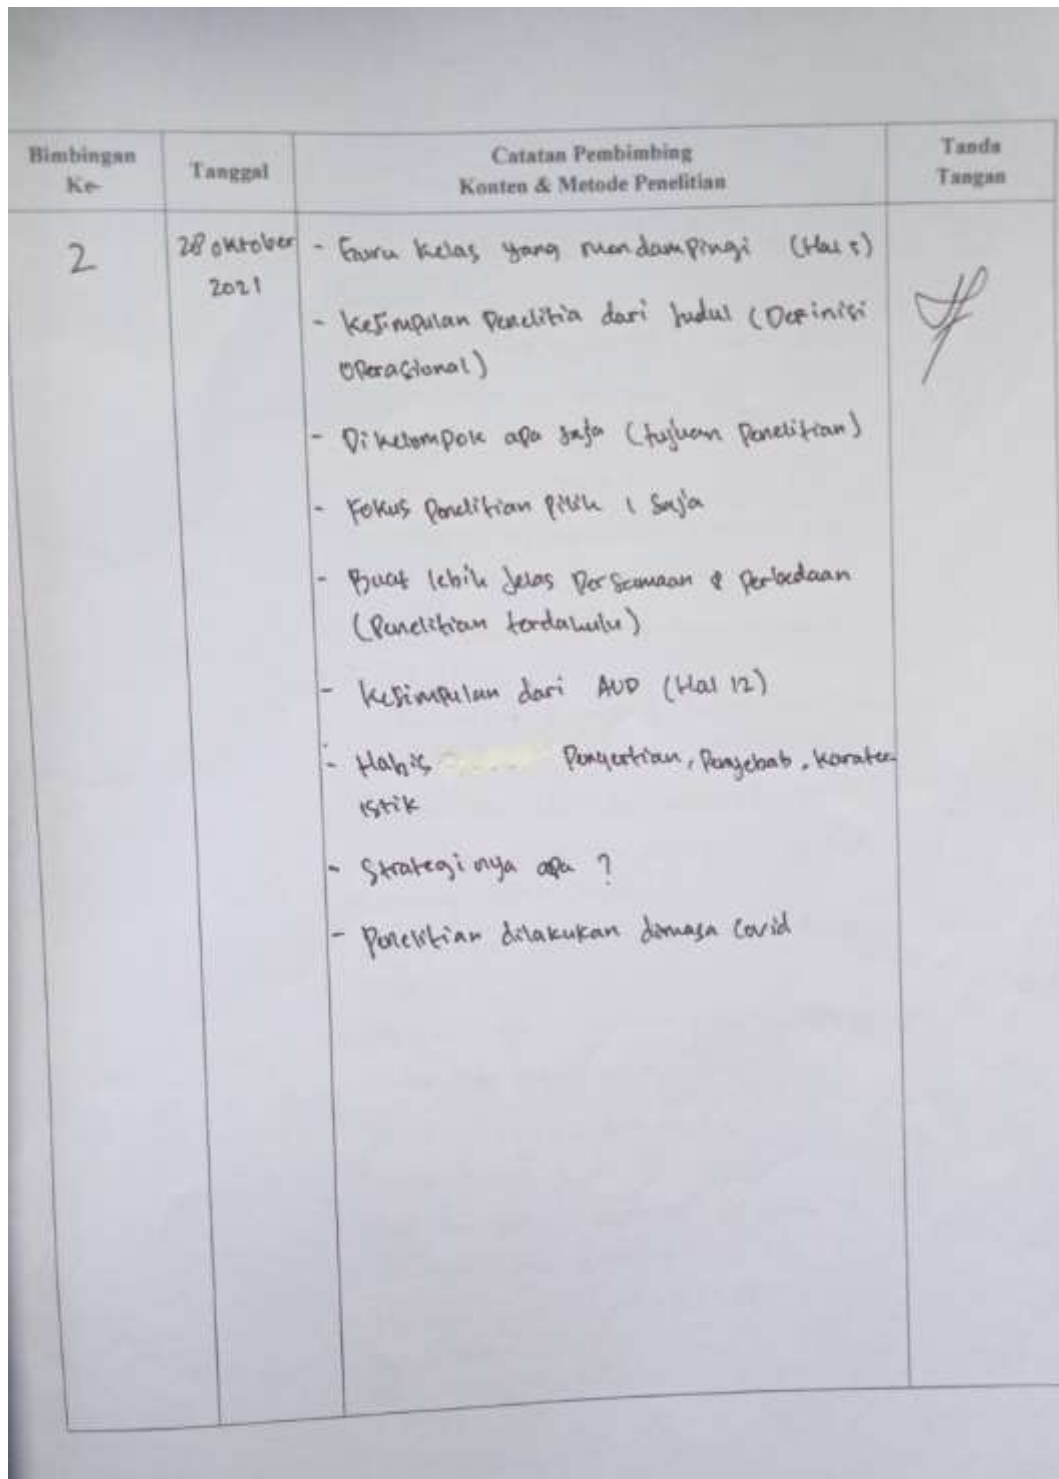 Bimbingan
Ke-
Tanggal
Catatan Pembimbing
Konten & Metode Penelitian
Tanda
Tangan
2
28 oktober
2021
- Guru kelas yang mendampingi (Hal 5)
- Kesimpulan Penelitia dari Judul (Definisi
Operasional)
- Di kelompok apa saja (tujuan Penelitian)
- Fokus Penelitian Pilih 1 saja
- Buat lebih Jelas Persamaan & Perbedaan
(Penelitian terdahulu)
- Kesimpulan dari AUD (Hal 12)
- Habis Pengertian, Penyebab, Karakter
istik
- Strategi nya apa ?
- Penelitian dilakukan dimasa Covid